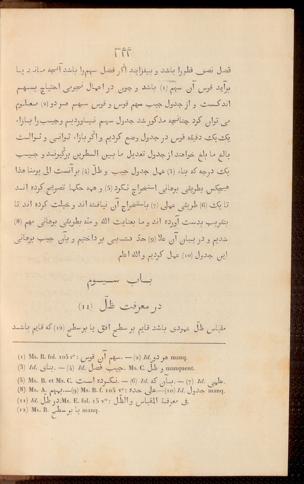 ٣٣٣
فضل نصف قطر را باشد و بیفزایند اگر فضل سهم را باشد آنچه
برآید قوس آن سهم (١) باشد و چون در اعمال احتیاج بسهم
اندکست و از جدول جیب سهم قوس و قوس سهم هر دو (٢) معلوم
می توان کرد چنانچه مذکور شد جدول سهم نیاوردیم و جیب را
یک یک دقیقه قوس در جدول وضع کردیم و اگر بازاء ثوانی و ثوالث
بالغ ما بلغ خواهند از جدول تعدیل ما بین السطرین برگیرند و جیب
یک درجه که بناء (٣) عمل جدول جیب و ظل (٤) بر آنست الی یومنا هذا
هیچکس بطریقی برهانی استخراج نکرد (٥) و همه حکما تصریح کرده اند
تا یک (٦) طریقی عملی (٧) باستخراج آن نیافته اند و حیلت کرده اند تا
بتقریب بدست آورده اند و ما بعنایت الله و منّه بطریقی برهانی ملهم (٨)
شدیم و در بیان آن علا (٩) حدّة کتابی پرداختیم و بآن جیب برهانی
این جدول (١٠) عمل کردیم والله اعلم
باب سیوم
در معرفت ظلّ (١١)
مقیاس ظلّ عمودی باشد قایم بر سطح افق یا بر سطحی (١٢) که قایم باشد
(1) Ms. B. fol. 105 rº: سهم آن قوس. — (2) Id. هر دو manq.
(3) Id. بنای. — (4) Id. جیب فضل. Ms. C. و ظل manquent.
(5) Ms. B. et Ms. C. نکرده است. — (6) Id. بیان که. — (7) Id.
(8) Ms. A. بهم. — (9) Ms. B. f. 105 vº: علی حده. — (10) Id. جدول manq.
(11) Id. در ظلّ; Ms. E. fol. 15 vº: فی معرفة المقیاس و الظلّ
(12) Ms. B. یا بر سطحی manq.